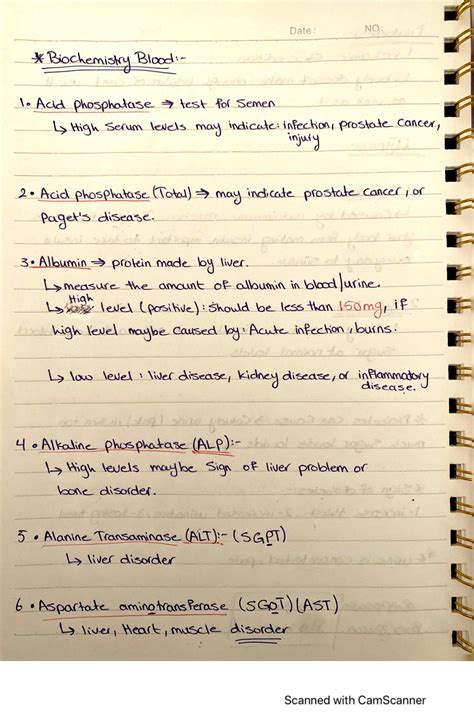 Date: NO:
* Biochemistry Blood:-
1. Acid phosphatase → test for Semen
↳ High Serum levels may indicate: infection, prostate cancer,
injury
2. Acid phosphatase (Total) ⇒ may indicate prostate cancer, or
Paget's disease.
3. Albumin ⇒ protein made by liver.
↳ measure the amount of albumin in blood/urine.
↳ High level (positive): Should be less than 150mg, if
high level maybe caused by: Acute infection, burns.
↳ low level: liver disease, kidney disease, or inflammatory
disease.
4. Alkaline phosphatase (ALP):-
↳ High levels maybe Sign of liver problem or
bone disorder.
5. Alanine Transaminase (ALT):- (SGPT)
↳ liver disorder
6. Aspartate aminotransferase (SGOT)(AST)
↳ liver, Heart, muscle disorder
Scanned with CamScanner